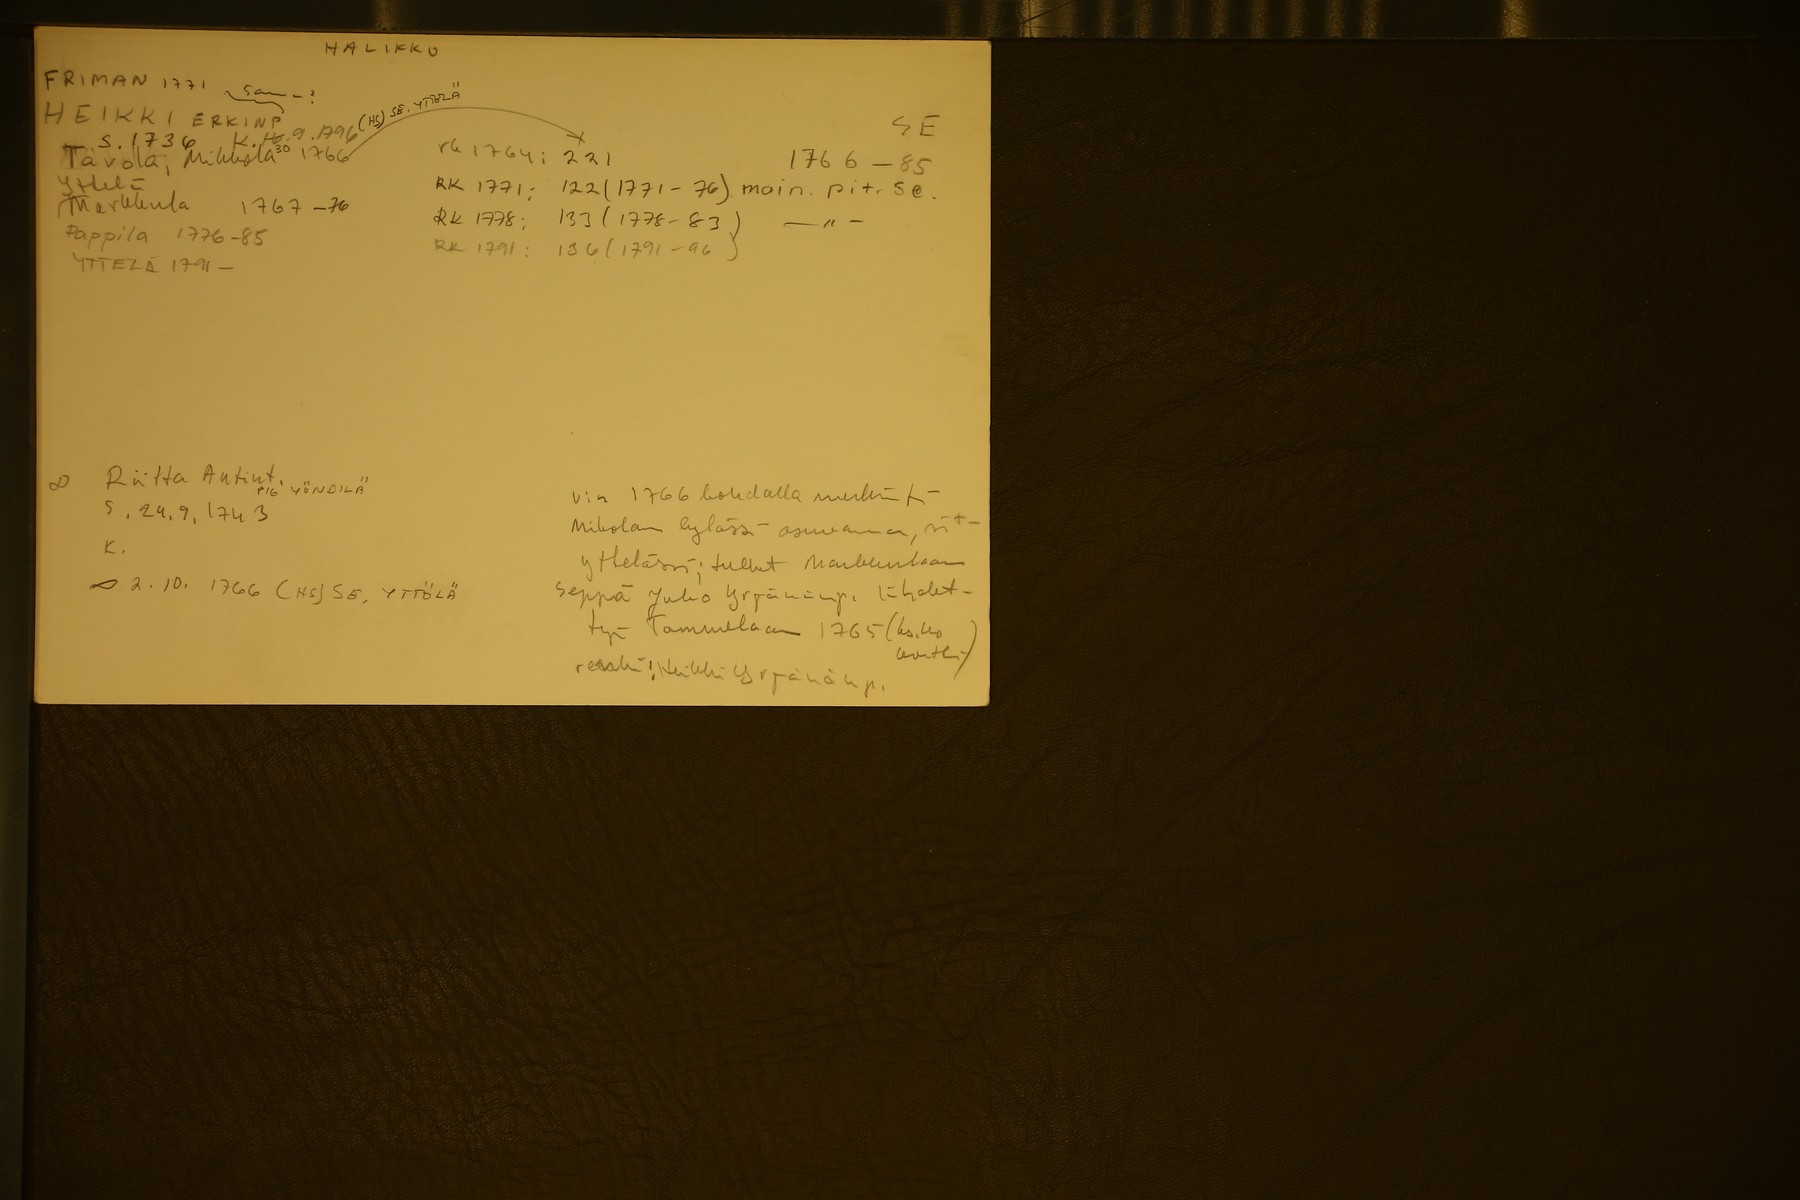 HALIKKO
FRIMAN 1771
HEIKKI ERKINP
(HS) SE. YTTÖLÄ
S. 1736 K. 30.9.1796
Tavola, Mikkola 1766
Yttelä
Markkula 1767-76
Pappila 1776-85
YTTELÄ 1791-
SE
rk 1764: 221 1766-85
RK 1771: 122 (1771-76) main. pit. se.
RK 1778: 133 (1778-83) -"-
RK 1791: 136 (1791-96)
∞ Riitta Antint.
PIG YÖNDILÄ
S. 29.9.1743
K.
∞ 2.10. 1766 (HS) SE. YTTÖLÄ
v:n 1766 kohdalla merkitty
Mikolan kylässä asuvana, sit-
Yttelässä; tullut Markkulaan
seppä Juho Yrjänänp. lähdet-
tyä Tammelaan 1765 (ks. ko
kortti)
Heikki Yrjänänp.